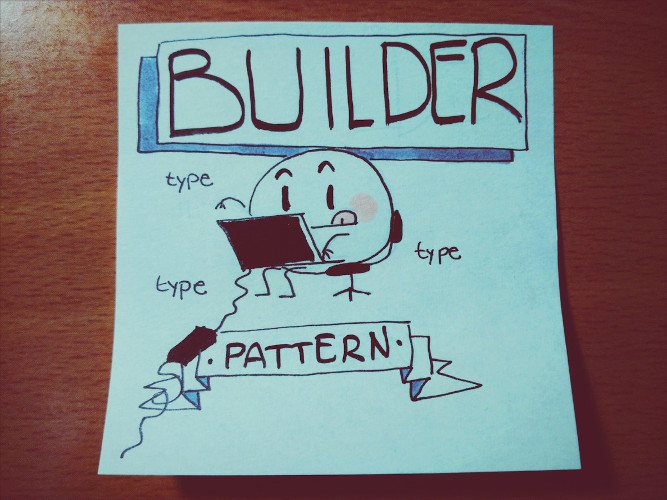 BUILDER
type
type
type
· PATTERN ·